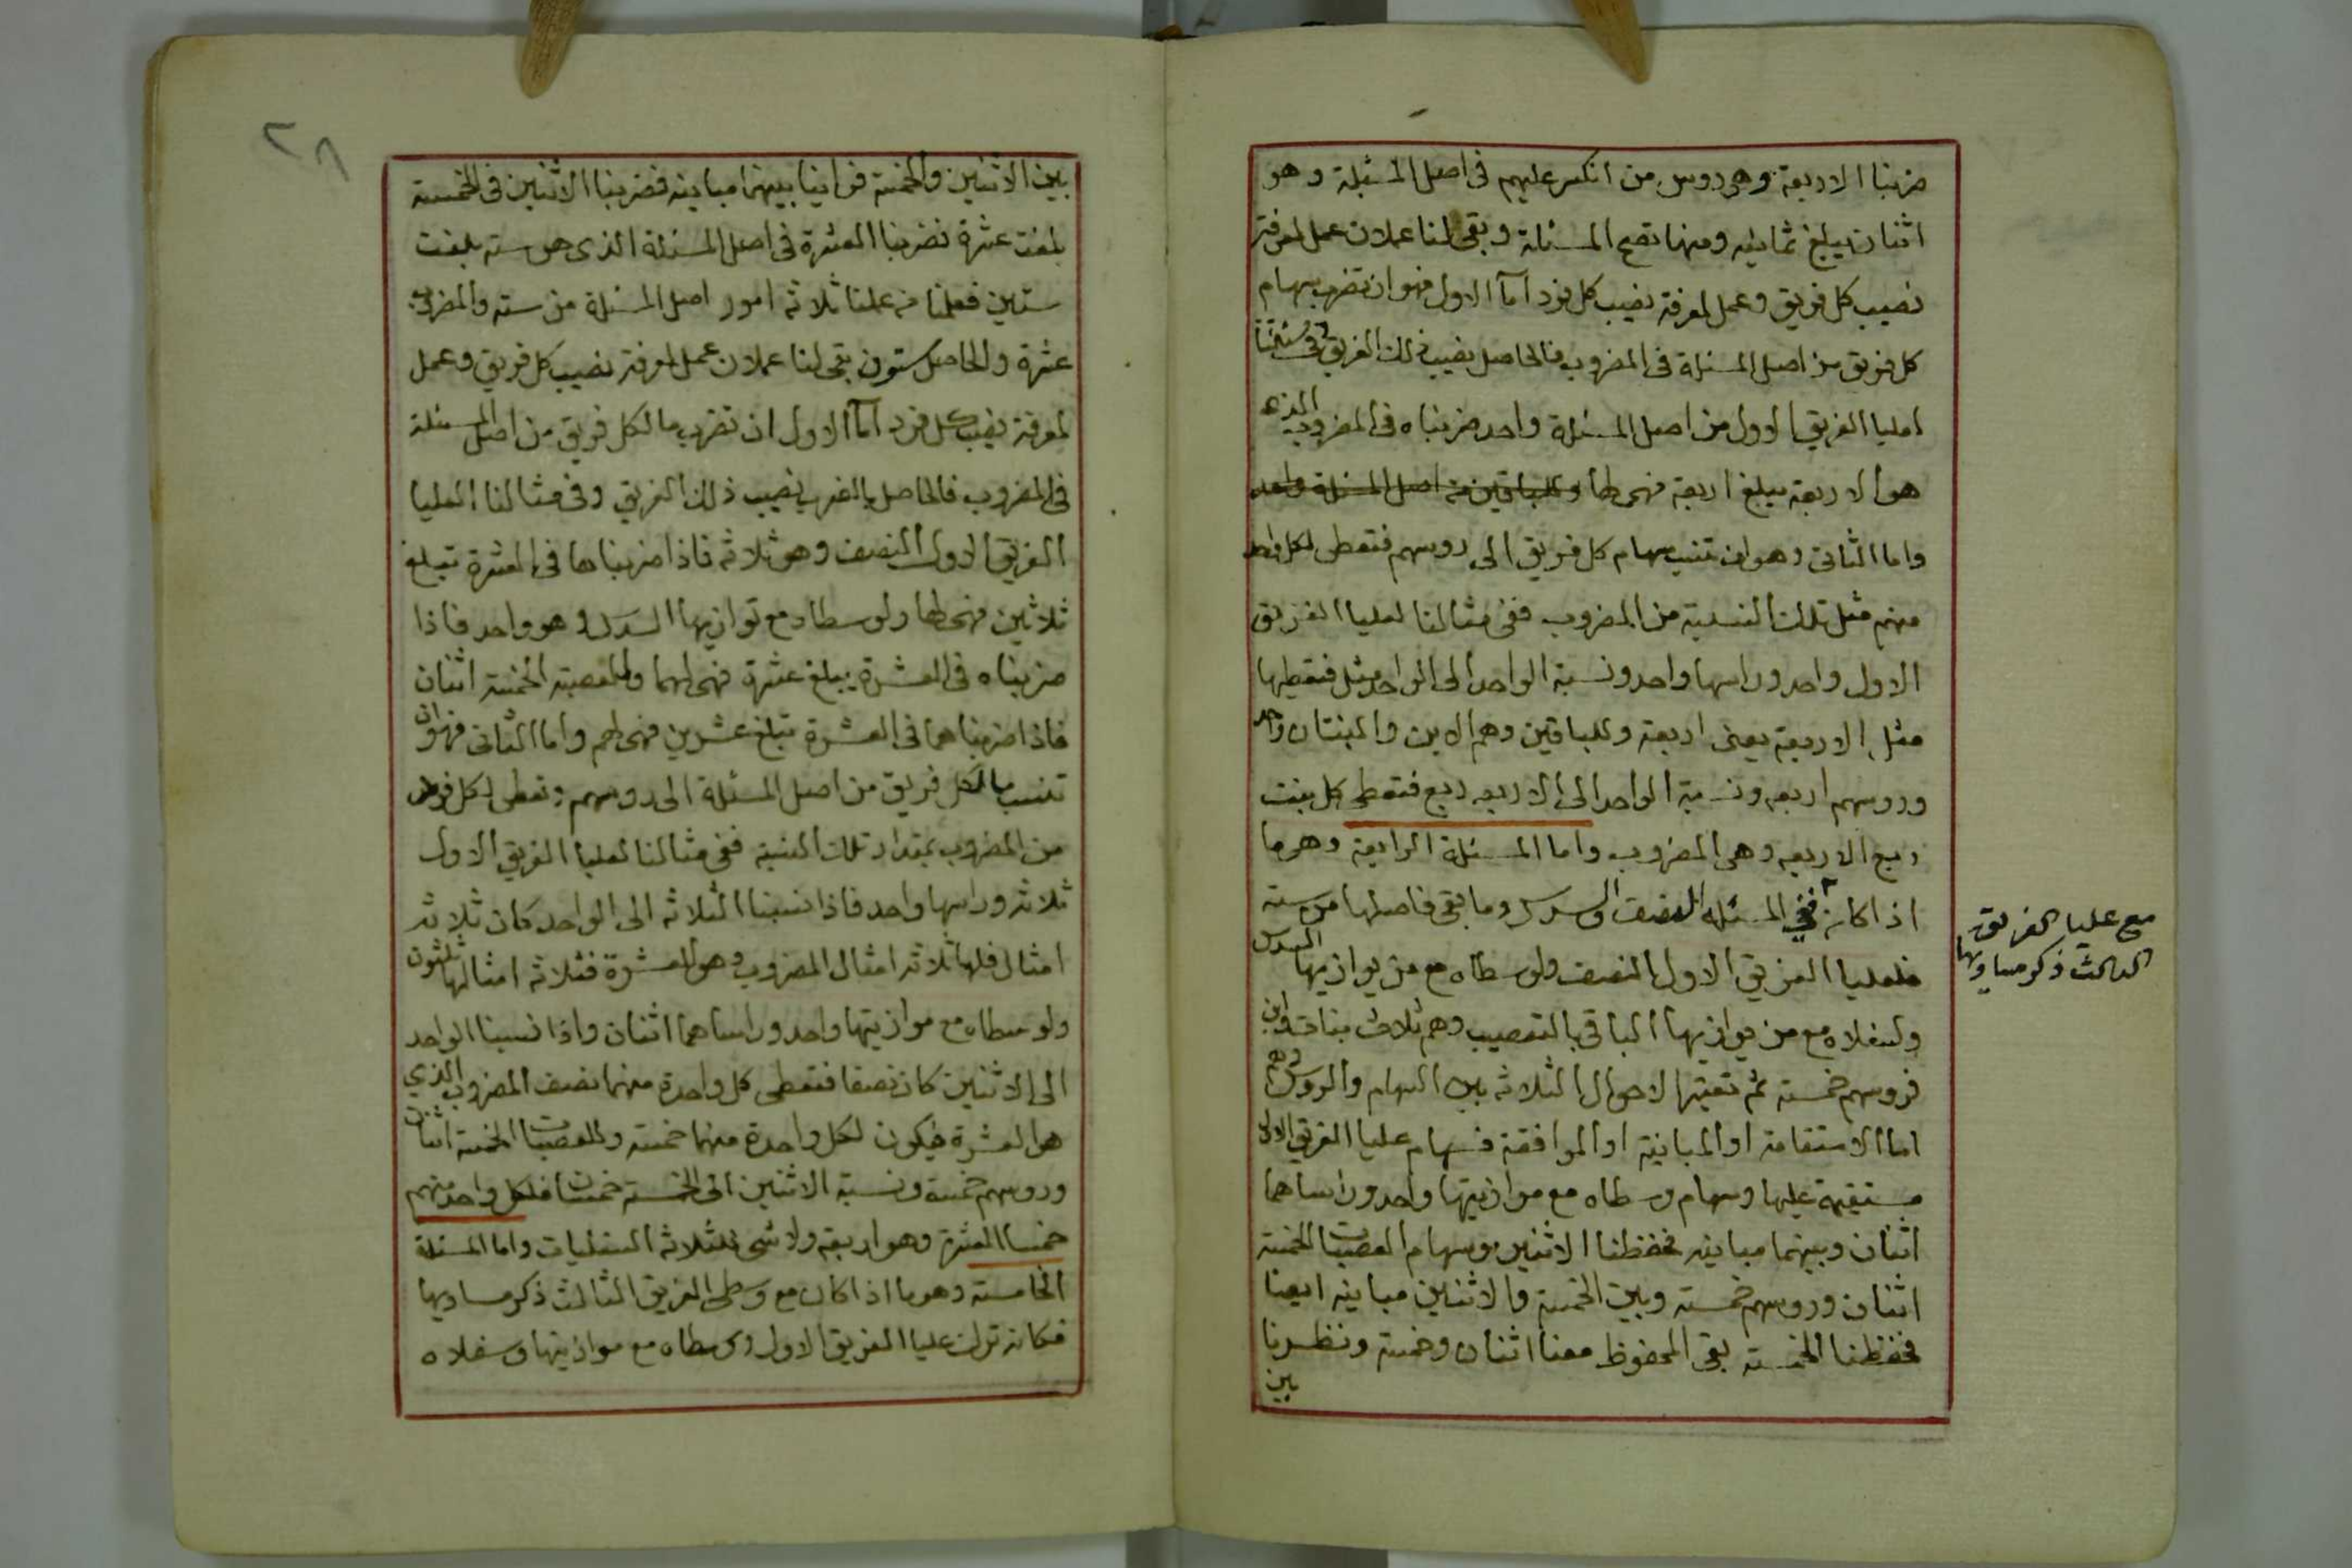 ضربنا الاربعة وهى روس من انكسر عليهم فى اصل المسئلة وهو
اثنان يبلغ ثمانيه ومنها تصح المسئلة وبقى لنا عملان عمل لمعرفة
نصيب كل فريق وعمل لمعرفة نصيب كل فرد اما الاول فهو ان تضرب سهام
كل فريق من اصل المسئلة فى المضروب فالحاصل نصيب ذلك الفريق وفى مسئلتنا
لعليا الفريق الاول من اصل المسئلة واحد ضربناه فى المضروب الذى
هو الاربعة يبلغ اربعة فهى لها وللباقين من اصل المسئلة واحد
واما الثانى وهو ان تنسب سهام كل فريق الى روسهم فتعطى لكل واحد
منهم مثل تلك النسبة من المضروب ففى مثالنا لعليا الفريق
الاول واحد وراسها واحد ونسبة الواحد الى الواحد مثل فتعطيها
مثل الاربعة يعنى اربعة وللباقين وهم الابن والبنتان واحد
وروسهم اربعه ونسبة الواحد الى الاربعه ربع فتعطى كل بنت
ربع الاربعه وهى المضروب واما المسئلة الرابعة وهى ما
اذا كان ففى المسئله النصف والسدس وما بقى فاصلها من سته
مع عليا الفريق
الثالث ذكر مساويها
فلعليا الفريق الاول النصف ولوسطاه مع من يوازيها السدس
ولسفلاه مع من يوازيها الباقى بالتعصيب وهم ثلاث بنات وابن
فروسهم خمسته ثم تعتبر الاحوال الثلاثه بين السهام والروس وهى
اما الاستقامة او المباينة او الموافقة فسهام عليا الفريق الاول
مستقيمة عليها وسهام وسطاه مع موازيتها واحد وراساهما
اثنان وبينهما مباينه فحفظنا الاثنين وسهام العصبات الخمسة
اثنان وروسهم خمسته وبين الخمسة والاثنين مباينه ايضا
فحفظنا الخمسته بقى المحفوظ معنا اثنان وخمسة ونظرنا
بين
٢٨
بين الاثنين والخمسة فراينا بينهما مباينه فضربنا الاثنين فى الخمسة
بلغت عشرة فضربنا العشرة فى اصل المسئلة الذى هو سته بلغت
ستين فعلمنا من عملنا ثلاثه امور اصل المسئلة من سته والمضروب
عشرة والحاصل ستون بقى لنا عملان عمل لمعرفة نصيب كل فريق وعمل
لمعرفة نصيب كل فرد اما الاول ان تضرب ما لكل فريق من اصل المسئلة
فى المضروب فالحاصل بالضرب نصيب ذلك الفريق وفى مثالنا لعليا
الفريق الاول النصف وهو ثلاثه فاذا ضربناها فى العشرة تبلغ
ثلاثين فهى لها ولوسطاه مع توازيها السدس وهو واحد فاذا
ضربناه فى العشرة يبلغ عشرة فهى لهما وللعصبة الخمسة اثنان
فاذا ضربناهما فى العشرة تبلغ عشرين فهى لهم واما الثانى فهو ان
تنسب ما لكل فريق من اصل المسئلة الى روسهم وتعطى لكل فرد
من المضروب بمقدار تلك النسبة ففى مثالنا لعليا الفريق الاول
ثلاثه وراسها واحد فاذا نسبنا الثلاثه الى الواحد كان ثلاثه
امثال فلها ثلاثه امثال المضروب وهو العشرة فثلاثه امثالها ثلثون
ولوسطاه مع موازيتها واحد وراساهما اثنان واذا نسبنا الواحد
الى الاثنين كان نصفا فتعطى كل واحدة منهما نصف المضروب الذي
هو العشرة فيكون لكل واحدة منهما خمسة وللعصبات الخمسة اثنان
وروسهم خمسة ونسبة الاثنين الى الخمسته خمسان فلكل واحد منهم
خمسا العشرة وهو اربعة ولا شى للثلاثه السفليات واما المسئلة
الخامسته وهو ما اذا كان مع وسطى الفريق الثالث ذكر مساويها
فكانه ترك عليا الفريق الاول ووسطاه مع موازيتها وسفلاه